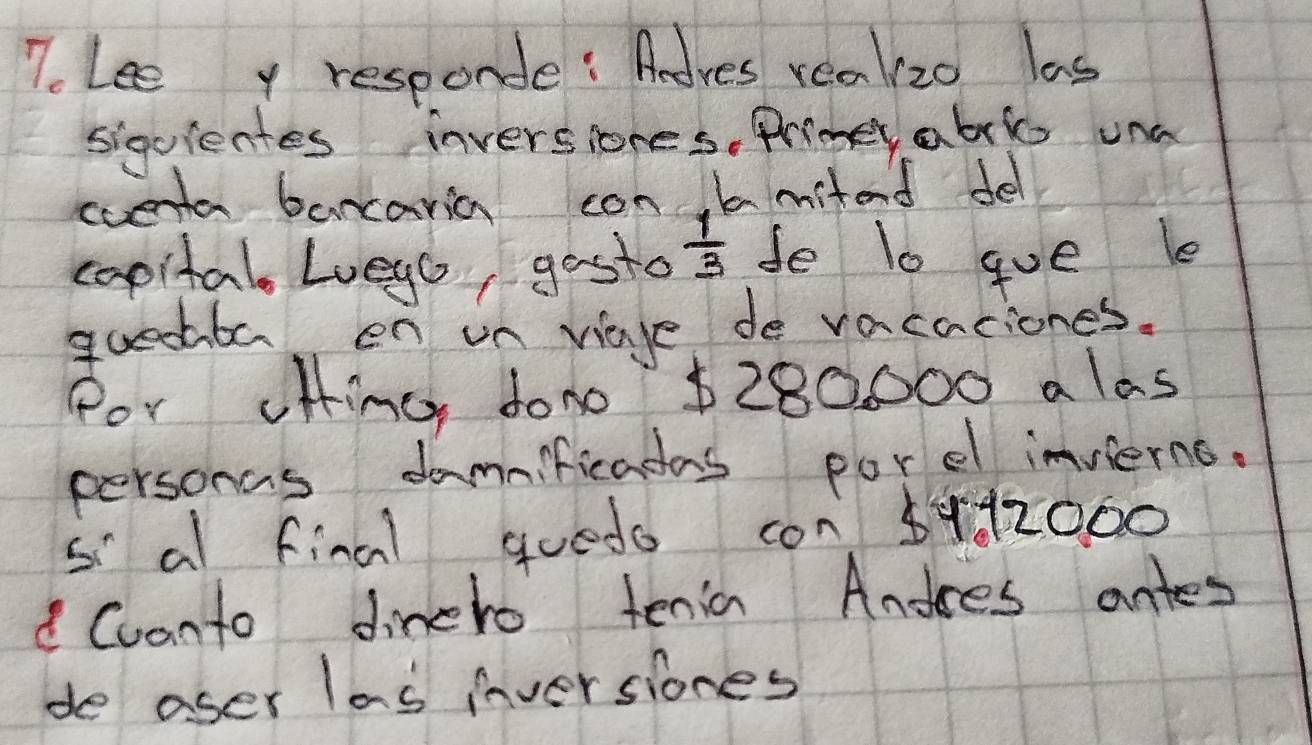 7. Lee y responde: Andres realizo las
siguientes inversiones. Primer, abrio una
cuenta bancaria con la mitad del
capital. Luego, gasto 1/3 de lo que le
quedaba en un viaje de vacaciones.
Por ultimo, dono $280.000 a las
personas damnificadas por el invierno.
si al final quedo con
¿Cuanto dinero tenia Andres antes
de aser las inversiones